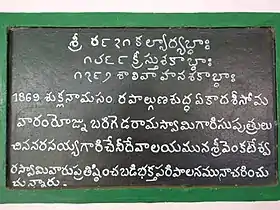 శ్రీ ౪౯౭౧ కల్యార్యబ్ధాః
౧౭౯౧ శాలివాహనశకాబ్ధాః
1869 శుక్లనామసం రపాల్గుణశుద్ధ ఏకాదశీసోమ
వారంరోజ్న బరిగెడరామస్వామిగారిసుపుత్రులు
చిననరసయ్యగారిచేనీదేవాలయమున శ్రీవెంకటేశ్వ
రస్వామివారుప్రతిష్ఠించబడిభక్తపరిపాలనమునాచరించు
చున్నారు.